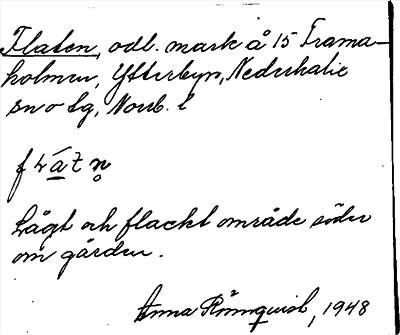 Flaten, odl. mark å 15 Frama-
holmen, Ytterbyn, Nederkalix
sn o lg, Norrb. l
Lågt och flackt område söder
om gården.
Anna Rönnquist, 1948